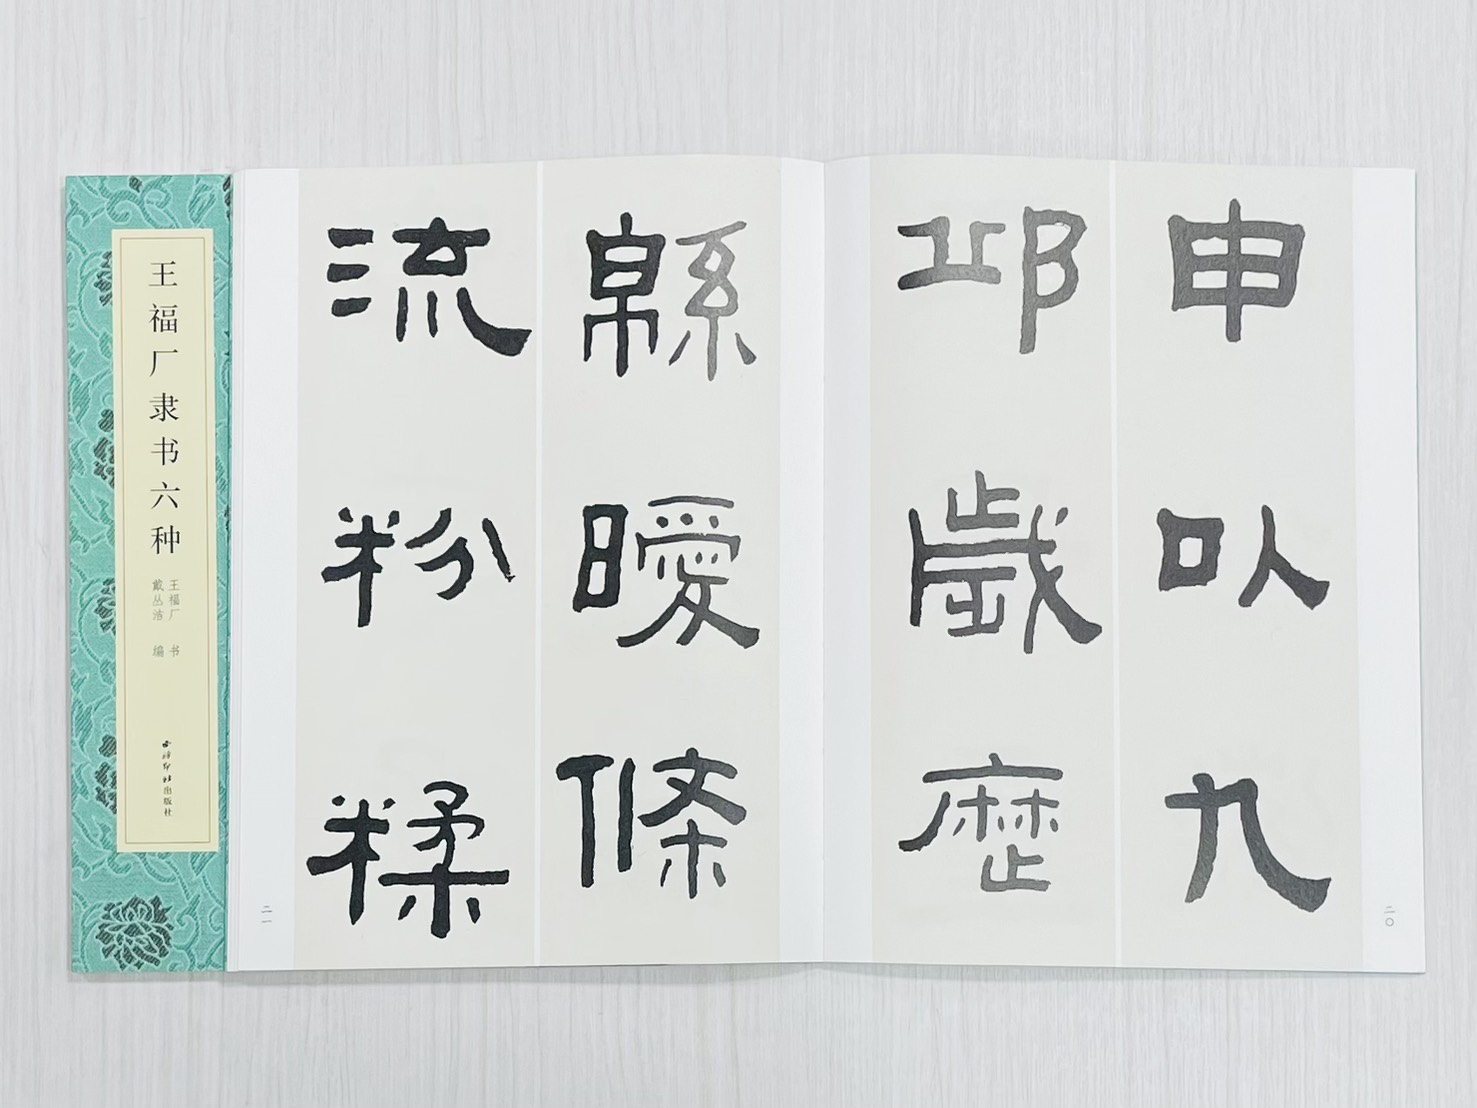 王福厂隶书六种
王福厂 书
戴丛洁 编
西泠印社出版社
申㕥九
邱歲歷
緜曖條
流粉糅
二〇
二一